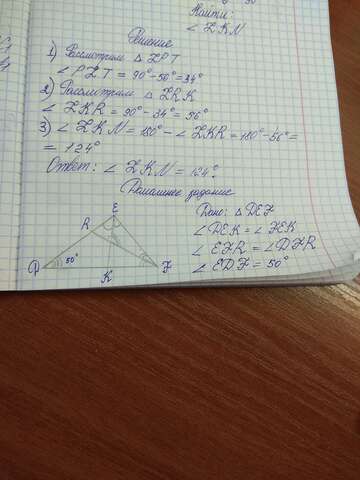 Найти:
∠ ZKN
Решение
1) Рассмотрим △ ZPT
∠ PZT = 90° - 56° = 34°
2) Рассмотрим △ ZRK
∠ ZKR = 90° - 34° = 56°
3) ∠ ZKN = 180° - ∠ ZKR = 180° - 56° =
= 124°
Ответ: ∠ ZKN = 124°.
Домашнее задание
Дано: △ DEF
∠ DEK = ∠ FEK
∠ EFR = ∠ DFR
∠ EDF = 50°
E
R
D 50° F
K